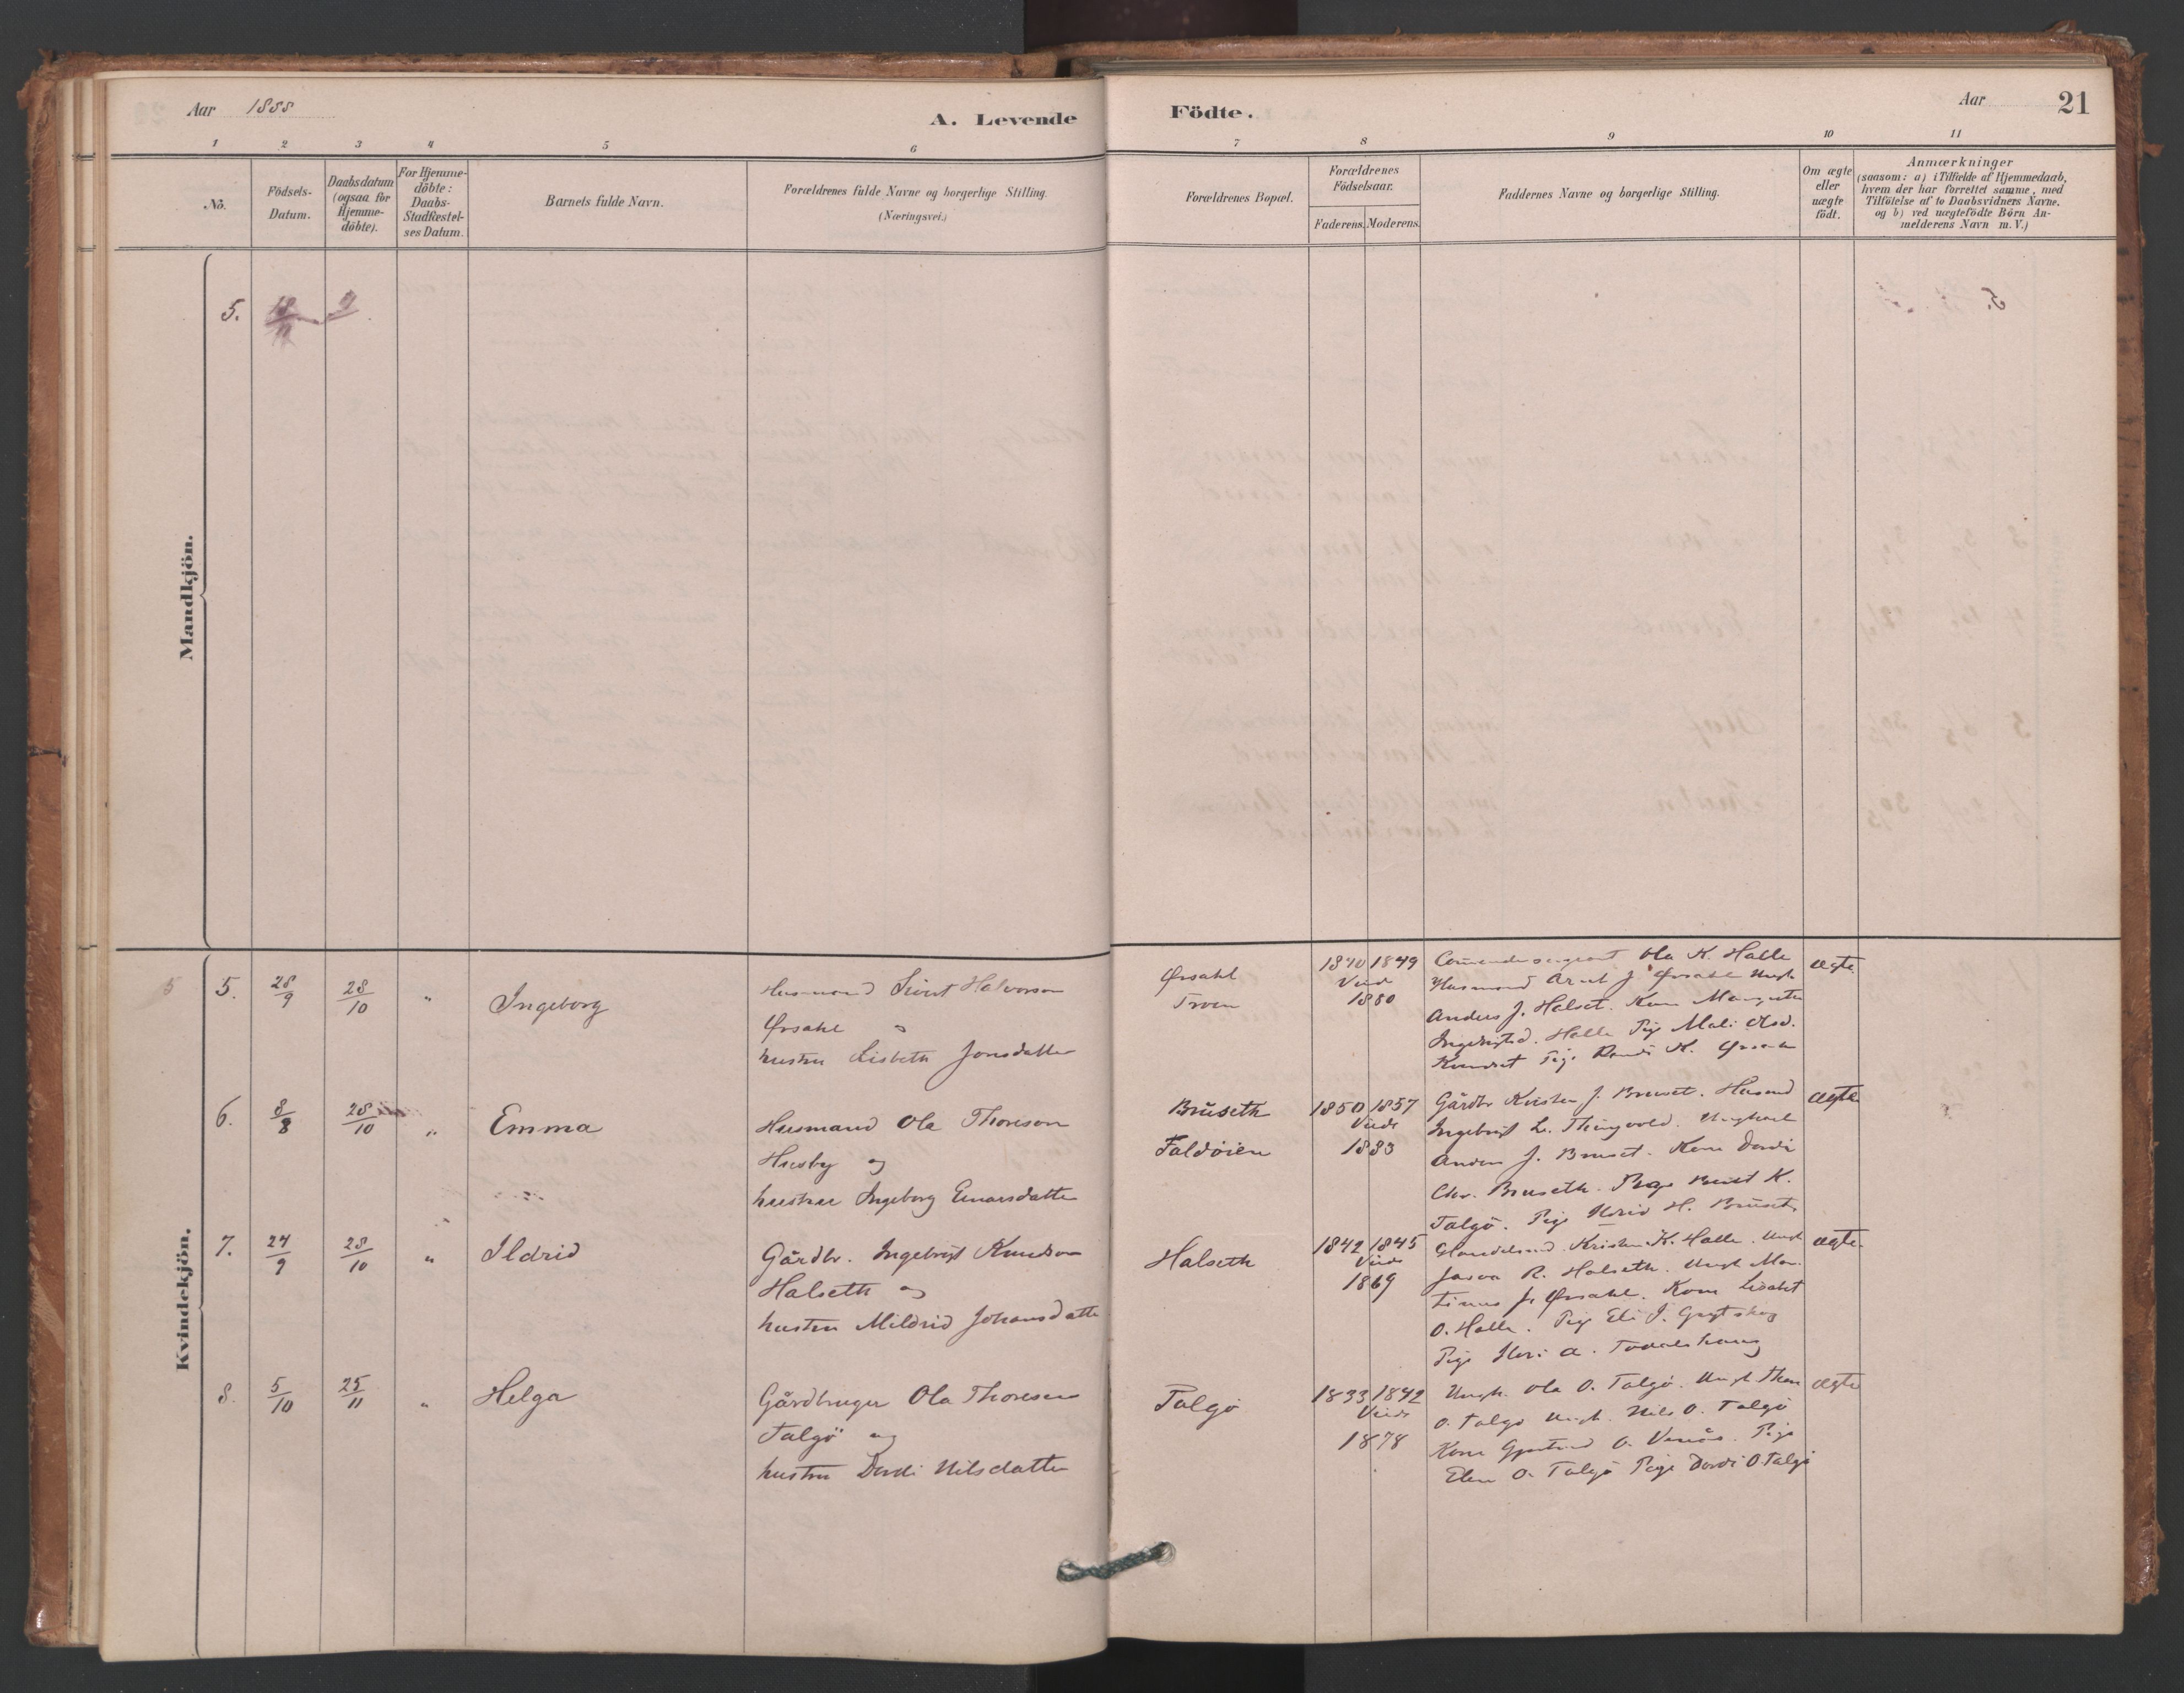 Aar 1888
A. Levende
Födte.
Aar
21
1 2 3 4 5 6 7 8 9 10 11
No.
Födsels-
Datum.
Daabsdatum
(ogsaa for
Hjemme-
döbte).
For Hjemme-
döbte:
Daabs-
Stadfæstel-
ses Datum.
Barnets fulde Navn.
Forældrenes fulde Navne og borgerlige Stilling.
(Næringsvei.)
Forældrenes Bopæl.
Forældrenes
Födselsaar.
Faderens. Moderens.
Faddernes Navne og borgerlige Stilling.
Om ægte
eller
uægte
födt.
Anmærkninger
(saasom: a) i Tilfælde af Hjemmedaab,
hvem der har forrettet samme, med
Tilföielse af to Daabsvidners Navne.
og b) ved uægtefödte Börn An-
melderens Navn m. V.)
Mandkjön.
5. 18/11
Kvindekjön.
5 5. 28/9 28/10 " Ingeborg
Husmand Sivert Halvorson
Ørsahl og
hustru Lisbeth Jonsdatter
Ørsahl
Troen
1840 1849
Viede
1880
Ola K. Halle
Husmand Arnt J. Ørsahl Ungk
Anders J. Halset. Kone Margrethe
Ingebrigtsd. Halle Pige Mali Olsd.
Pige Randi K.
ægte.
6. 8/8 28/10 " Emma
Husmand Ola Thoreson
Husby og
hustrue Ingeborg Einarsdatter
Brüseth
Faldöien
1850 1857
Viede
1883
Gårdbr Kristen J. Bruset. Husmd
Ingebrigt L. Thingvold. Ungkarl
Anders J. Bruset. Kone Dordi
Chr. Bruseth. Pige Beret K.
Talgö. Pige H. Brüset
ægte
7. 24/9 28/10 " Ildrid
Gårdbr. Ingebrigt Knudson
Halseth og
hustru Mildrid Johansdatter
Halseth
1842 1845
Viede
1869
Handelsmd. Kristen K. Halle. Ungk
R. Halseth. Ungk Mar-
tinus J. Ørsahl. Kone
O. Halle. Pige Eli J. Grytskog
Pige A. Todalshaug
ægte.
8. 5/10 25/11 " Helga
Gårdbruger Ola Thoresen
Talgö og
hustru Dordi Nilsdatter
Talgö
1833 1842
Viede
1878
Ungk. Ola O. Talgö. Ungk Thore
O. Talgö Ungk. Nils O. Talgö
Kone Gjertrud O. Pige
Elen O. Talgö Pige Dordi O. Talgö
ægte